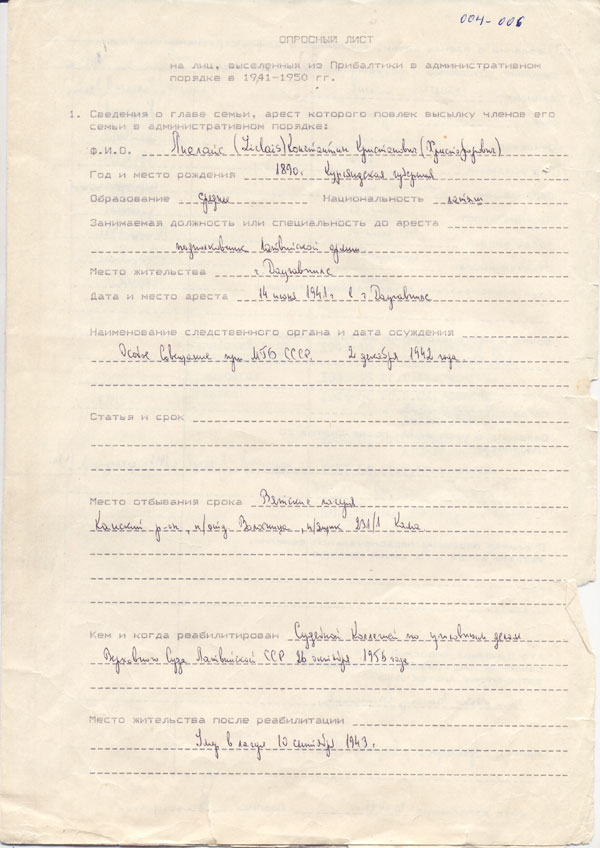 004-006
ОПРОСНЫЙ ЛИСТ
на лиц, выселенных из Прибалтики в административном
порядке в 1941-1950 гг.
1. Сведения о главе семьи, арест которого повлек высылку членов его
семьи в административном порядке:
Ф.И.О. (Lielais) Константин Кристапович (Христофорович)
Год и место рождения 1890г. Курляндская губерния
Образование среднее Национальность латыш
Занимаемая должность или специальность до ареста
подполковник Латвийской армии
Место жительства г. Даугавпилс
Дата и место ареста 14 июня 1941г. в г. Даугавпилс
Наименование следственного органа и дата осуждения
Особое Совещание при СССР. 2 декабря 1942 года.
Статья и срок
Место отбывания срока Вятские лагеря
р-он, п/отд Волосница, п/ящик 231/1
Кем и когда реабилитирован Судебной Коллегией по уголовным делам
Верховного Суда Латвийской ССР 26 октября 1956 года
Место жительства после реабилитации
Умер в лагере 10 сентября 1943 г.